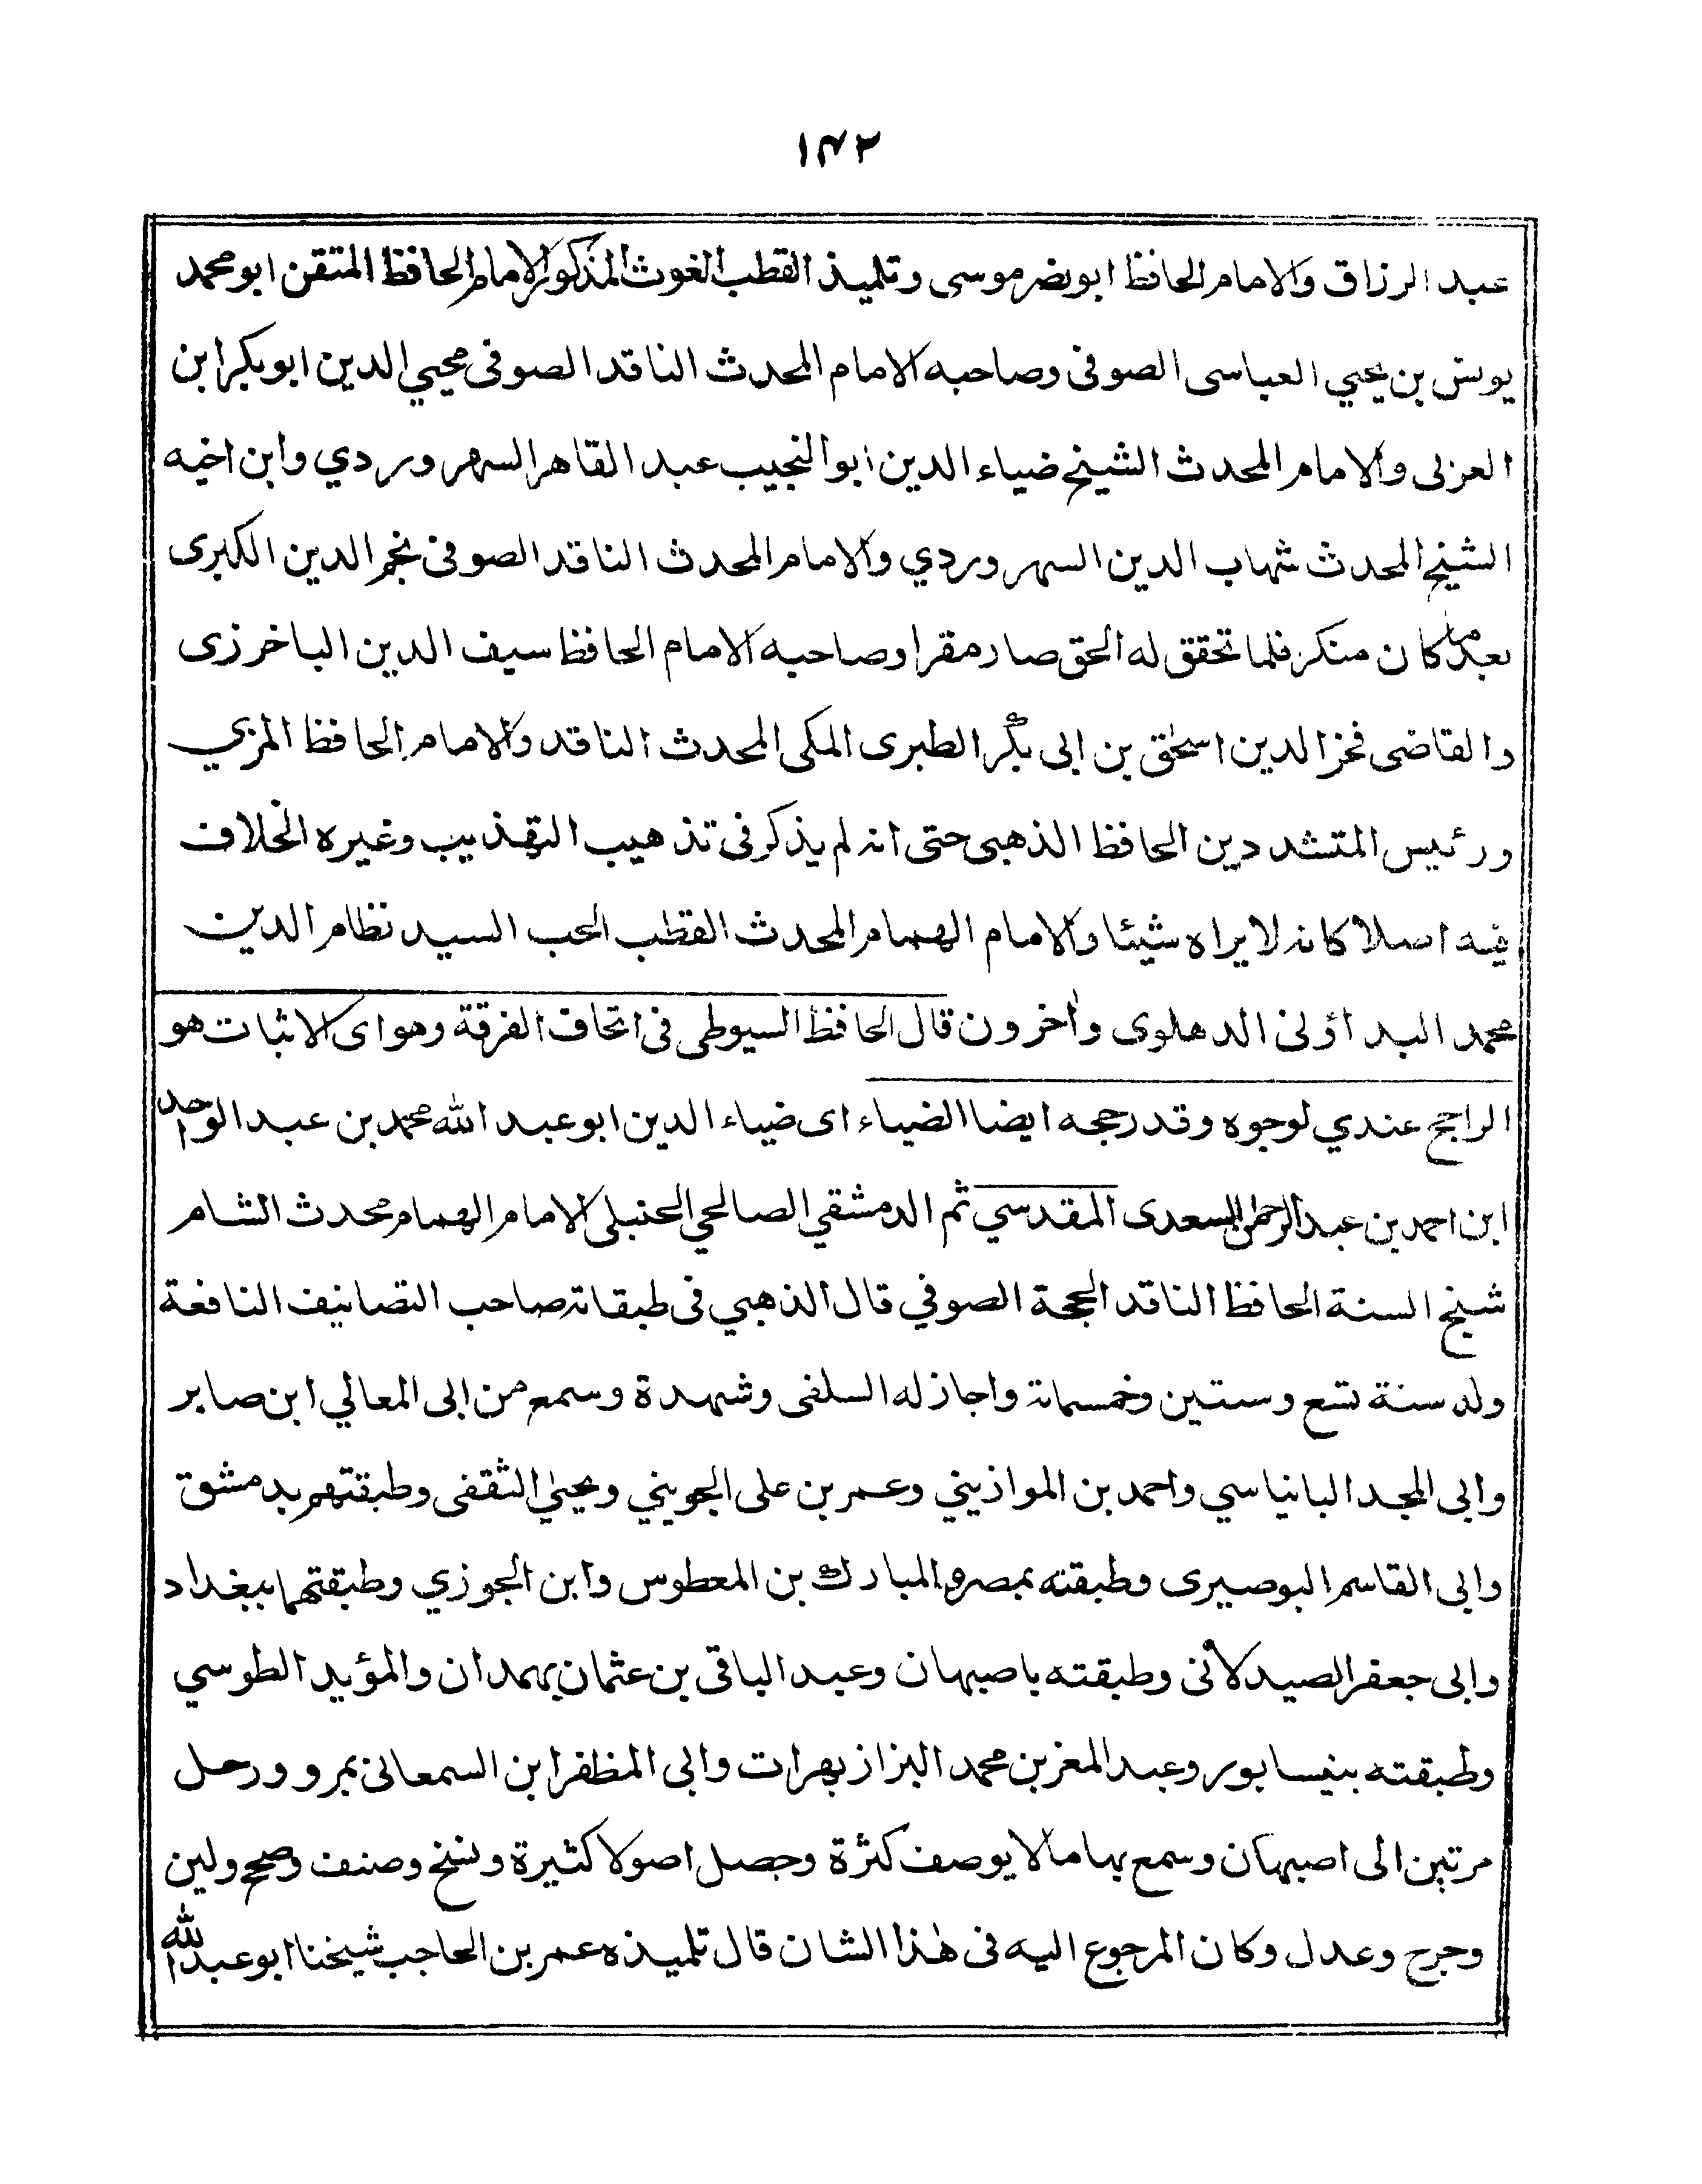 ١٤٢
عبد الرزاق والامام الحافظ ابونصر موسى وتلميذ القطب الغوث المذكور الامام الحافظ المتقن ابو محمد
يونس بن يحيي العباسى الصوفى وصاحبه الامام المحدث الناقد الصوفى محيي الدين ابوبكر ابن
العربى والامام المحدث الشيخ ضياء الدين ابو النجيب عبد القاهر السهروردي وابن اخيه
الشيخ المحدث شهاب الدين السهروردي والامام المحدث الناقد الصوفى نجم الدين الكبرى
بعد ما كان منكر فلما تحقق له الحق صار مقرا وصاحبه الامام الحافظ سيف الدين الباخرزى
والقاضى فخر الدين اسحٰق بن ابى بكر الطبرى المكى المحدث الناقد والامام الحافظ المزي
ورئيس المتشددين الحافظ الذهبى حتى انه لم يذكر فى تذهيب التهذيب وغيره الخلاف
فيه اصلا كانه لا يراه شيئا والامام الهمام المحدث القطب المحب السيد نظام الدين
محمد البداؤنى الدهلوى واٰخرون قال الحافظ السيوطى فى اتحاف الفرقة وهو اى الاثبات هو
الراجح عندي لوجوه وقد رجحه ايضا الضياء اى ضياء الدين ابو عبد الله محمد بن عبد الواحد
ابن احمد بن عبد الرحمن السعدى المقدسي ثم الدمشقي الصالحي الحنبلى الامام الهمام محدث الشام
شيخ السنة الحافظ الناقد الحجة الصوفي قال الذهبي فى طبقاته صاحب التصانيف النافعة
ولد سنة تسع وستين وخمسمائة واجاز له السلفى وشهدة وسمع من ابى المعالي ابن صابر
وابى المجد البانياسي واحمد بن الموازيني وعمر بن على الجويني ويحيٰي الثقفى وطبقتهم بدمشق
وابى القاسم البوصيرى وطبقته بمصر والمبارك بن المعطوس وابن الجوزي وطبقتهما ببغداد
وابى جعفر الصيدلانى وطبقته باصبهان وعبد الباقى بن عثمان بهمدان والمؤيد الطوسي
وطبقته بنيسابور وعبد المغر بن محمد البزاز بهرات وابى المظفر ابن السمعانى بمرو ورحل
مرتين الى اصبهان وسمع بها ما لا يوصف كثرة وحصل اصولا كثيرة ونسخ وصنف وصحح ولين
وجرح وعدل وكان المرجوع اليه فى هٰذا الشان قال تلميذه عمر بن الحاجب شيخنا ابو عبد الله